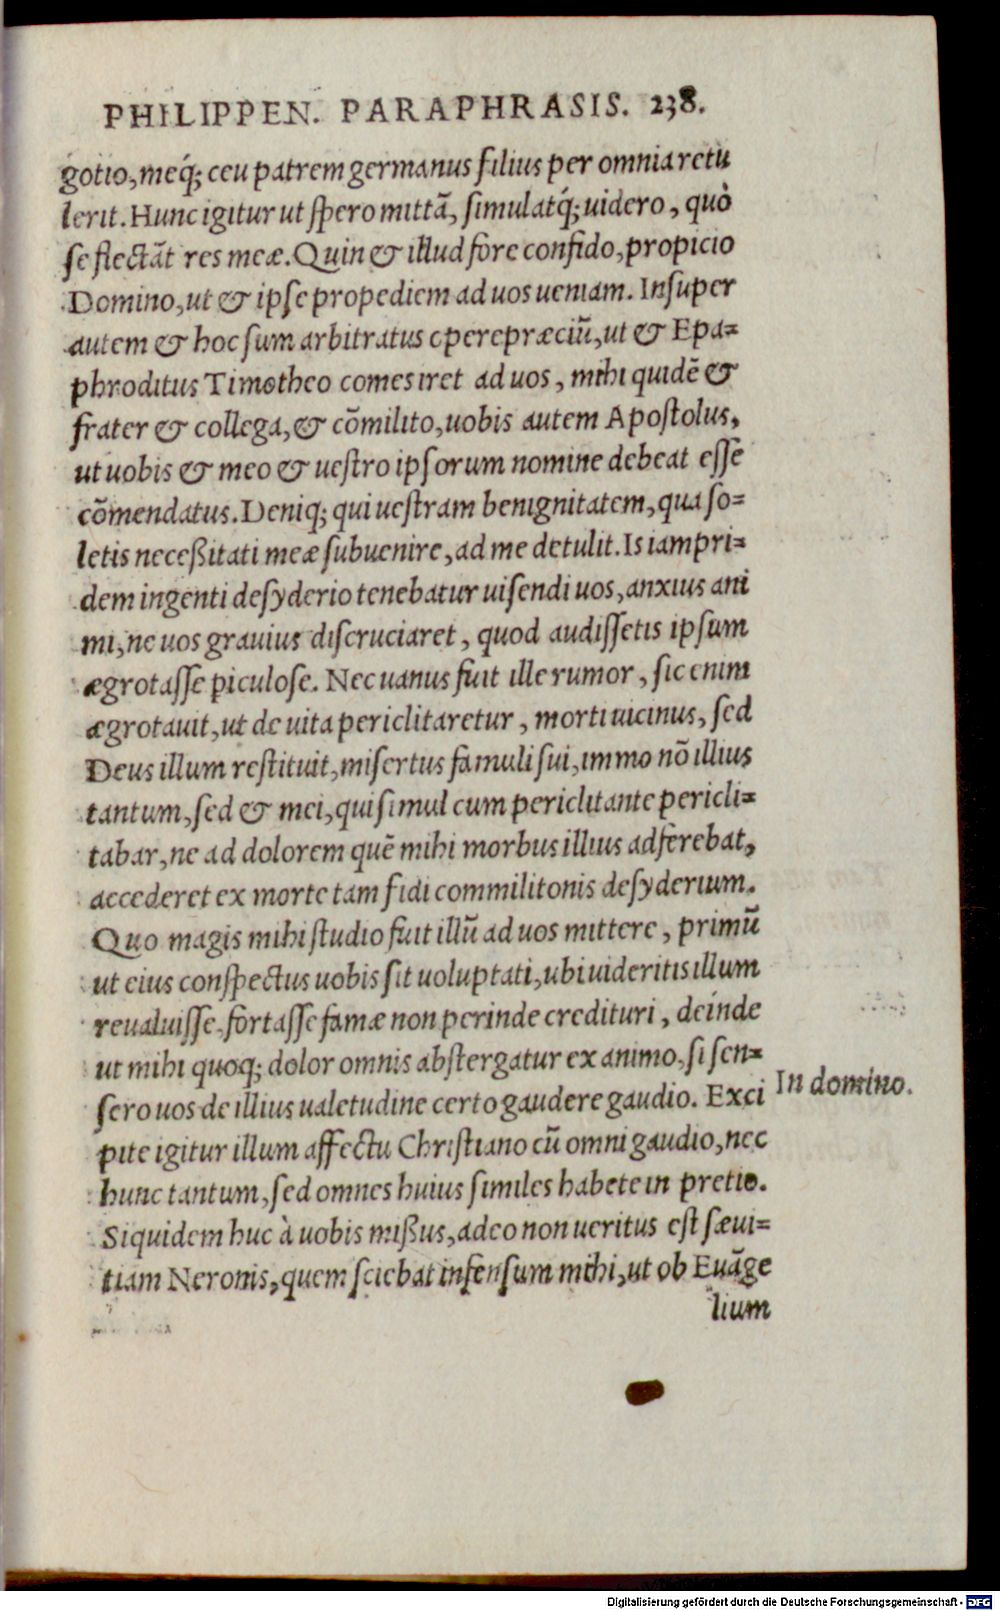 PHILIPPEN. PARAPHRASIS. 238.
gotio, meq́; ceu patrem germanus filius per omnia retu
lerit. Hunc igitur ut spero mittã, simulatq́; uidero, quò
se flectãt res meæ. Quin & illud fore confido, propicio
Domino, ut & ipse propediem ad uos ueniam. Insuper
autem & hoc sum arbitratus operepræciũ, ut & Epa=
phroditus Timotheo comes iret ad uos, mihi quidẽ &
frater & collega, & cõmilito, uobis autem Apostolus,
ut uobis & meo & uestro ipsorum nomine debeat esse
cõmendatus. Deniq; qui uestram benignitatem, qua so=
letis neceßitati meæ subuenire, ad me detulit. Is iampri=
dem ingenti desyderio tenebatur uisendi uos, anxius ani
mi, ne uos grauius discruciaret, quod audissetis ipsum
ægrotasse piculose. Nec uanus fuit ille rumor, sic enim
ægrotauit, ut de uita periclitaretur, morti uicinus, sed
Deus illum restituit, misertus famuli sui, immo nõ illius
tantum, sed & mei, qui simul cum periclitante pericli=
tabar, ne ad dolorem quẽ mihi morbus illius adferebat,
accederet ex morte tam fidi commilitonis desyderium.
Quo magis mihi studio fuit illũ ad uos mittere, primũ
ut eius conspectus uobis sit uoluptati, ubi uideritis illum
reualuisse, fortasse famæ non perinde credituri, deinde
ut mihi quoq; dolor omnis abstergatur ex animo, si sen=
sero uos de illius ualetudine certo gaudere gaudio. Exci
In domino.
pite igitur illum affectu Christiano cũ omni gaudio, nec
hunc tantum, sed omnes huius similes habete in pretio.
Siquidem huc à uobis mißus, adeo non ueritus est sæui=
tiam Neronis, quem sciebat infensum mihi, ut ob Euãge
lium
Digitalisierung gefördert durch die Deutsche Forschungsgemeinschaft - DFG